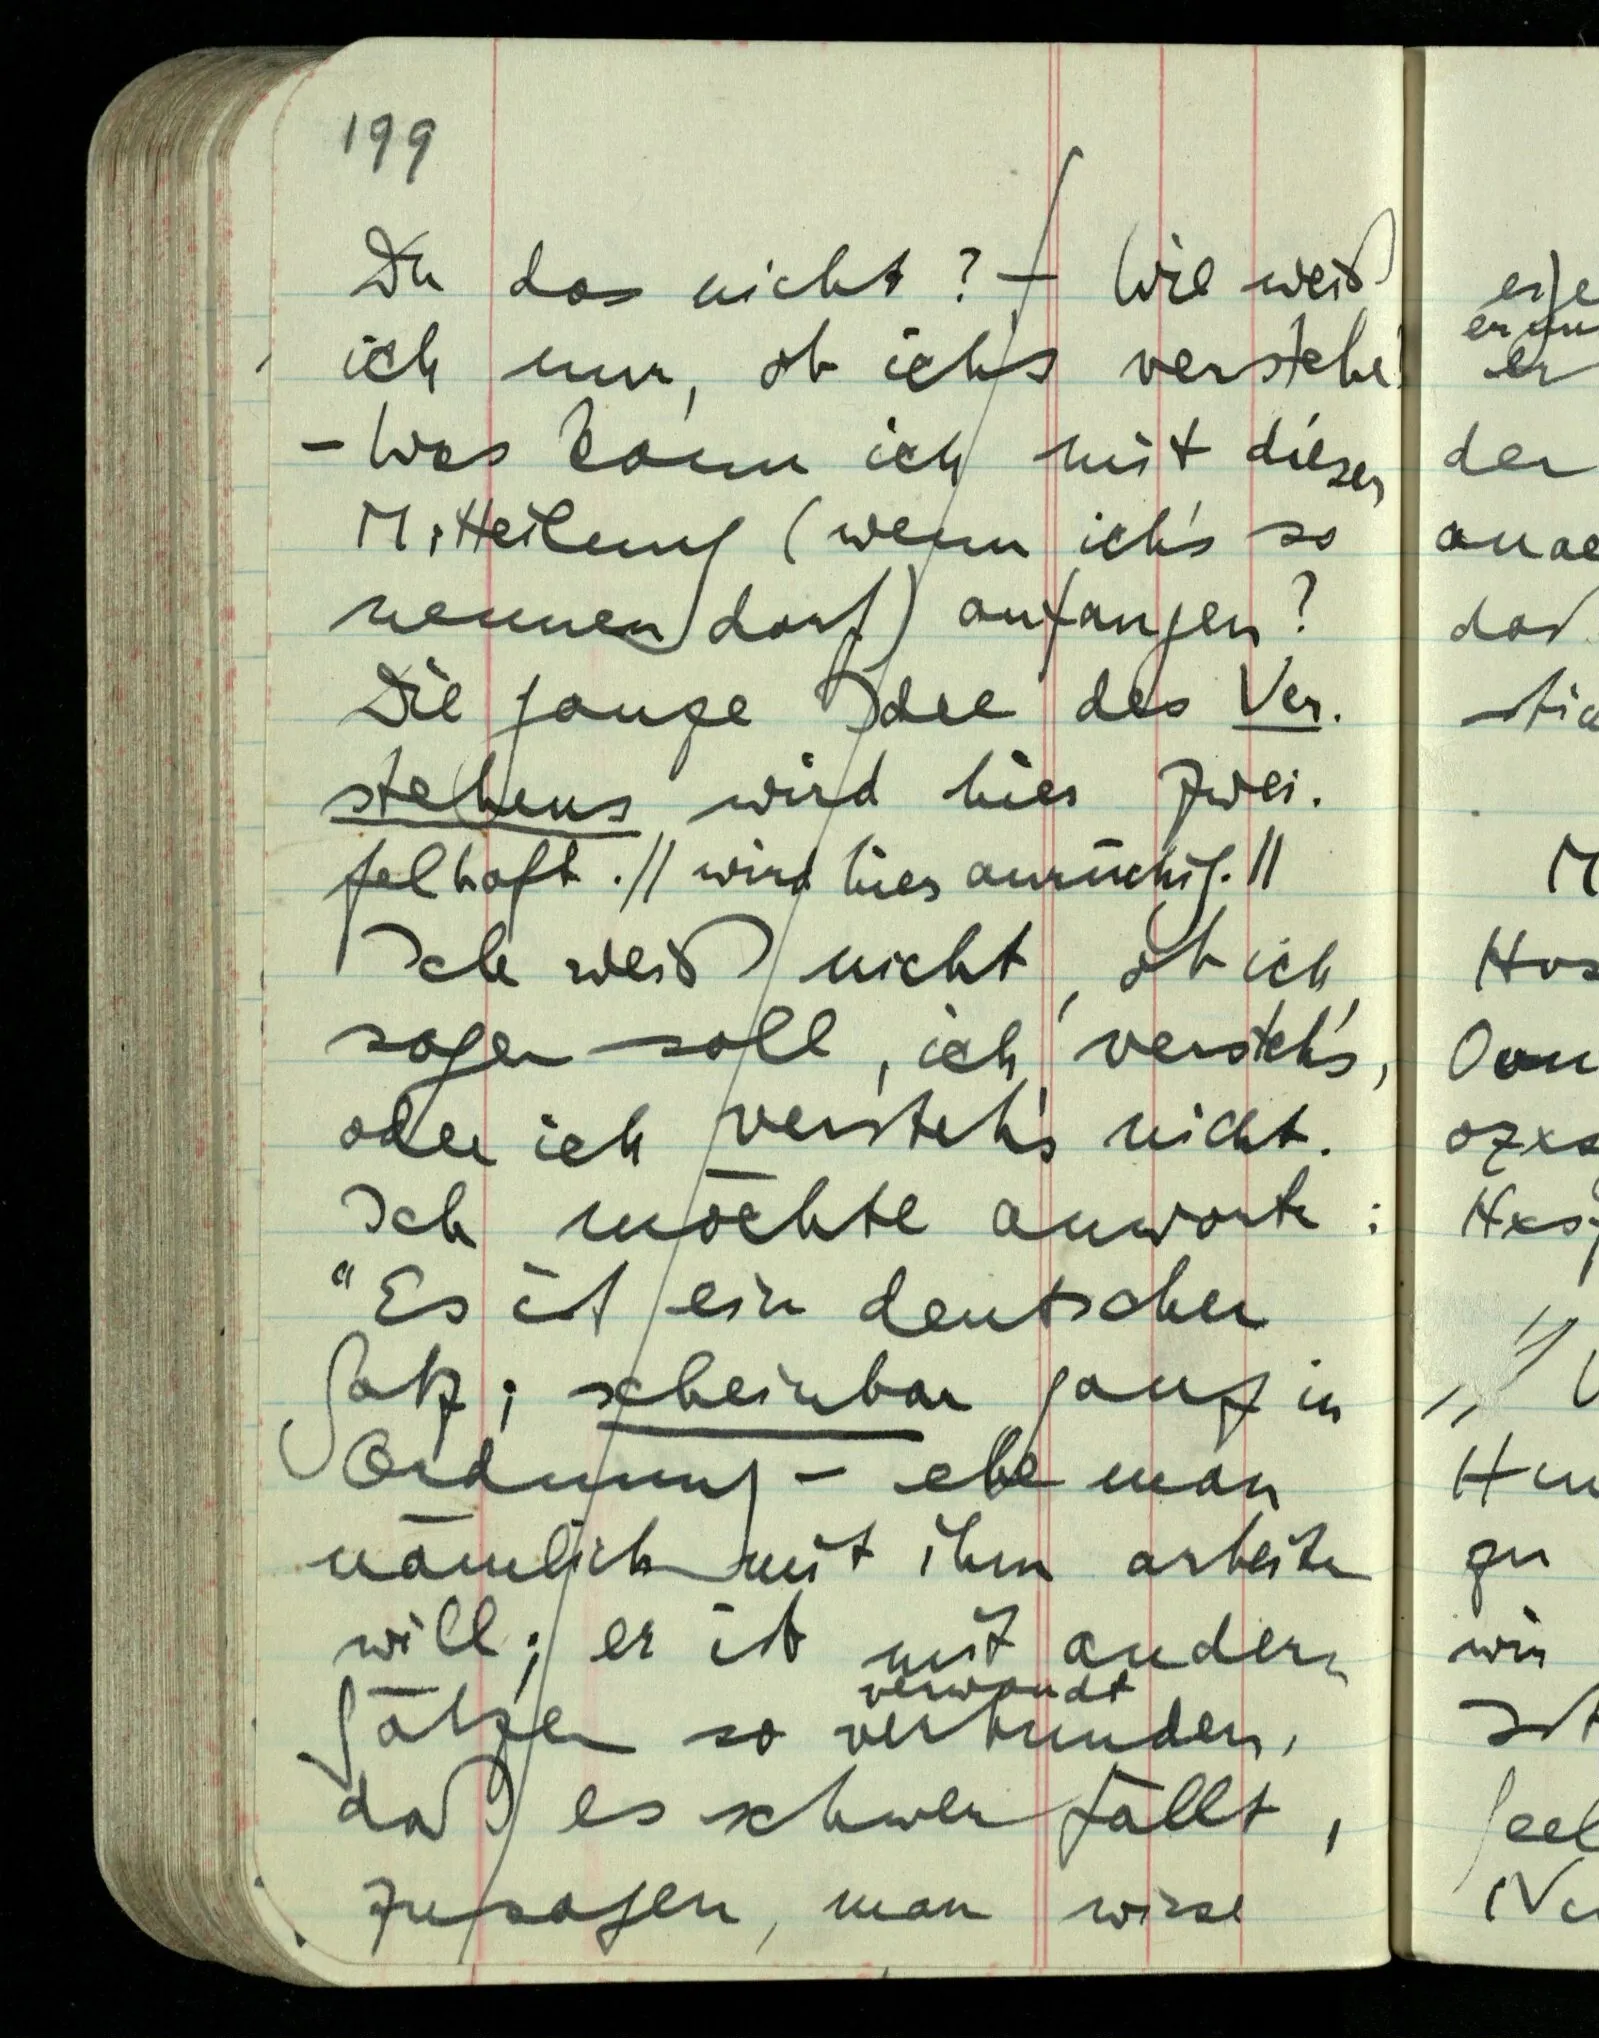 199
Du das nicht? – Wie weiß
ich nur, ob ich's verstehe!
– Was kann ich mit dieser
Mitteilung (wenn ich's so
nennen darf) anfangen?
Die ganze Idee des Ver-
stehens wird hier zwei-
felhaft. // wird hier anrüchig. //
Ich weiß nicht, ob ich
sagen soll, ich versteh's,
oder ich versteh's nicht.
Ich möchte anworten:
"Es ist ein deutscher
Satz; scheinbar ganz in
Ordnung – ehe man
nämlich mit ihm arbeiten
will; er ist mit andern
verwandt
Sätzen so verbunden,
daß es schwer fällt,
zu sagen, man wisse
er
der
daß
M
zu
wir